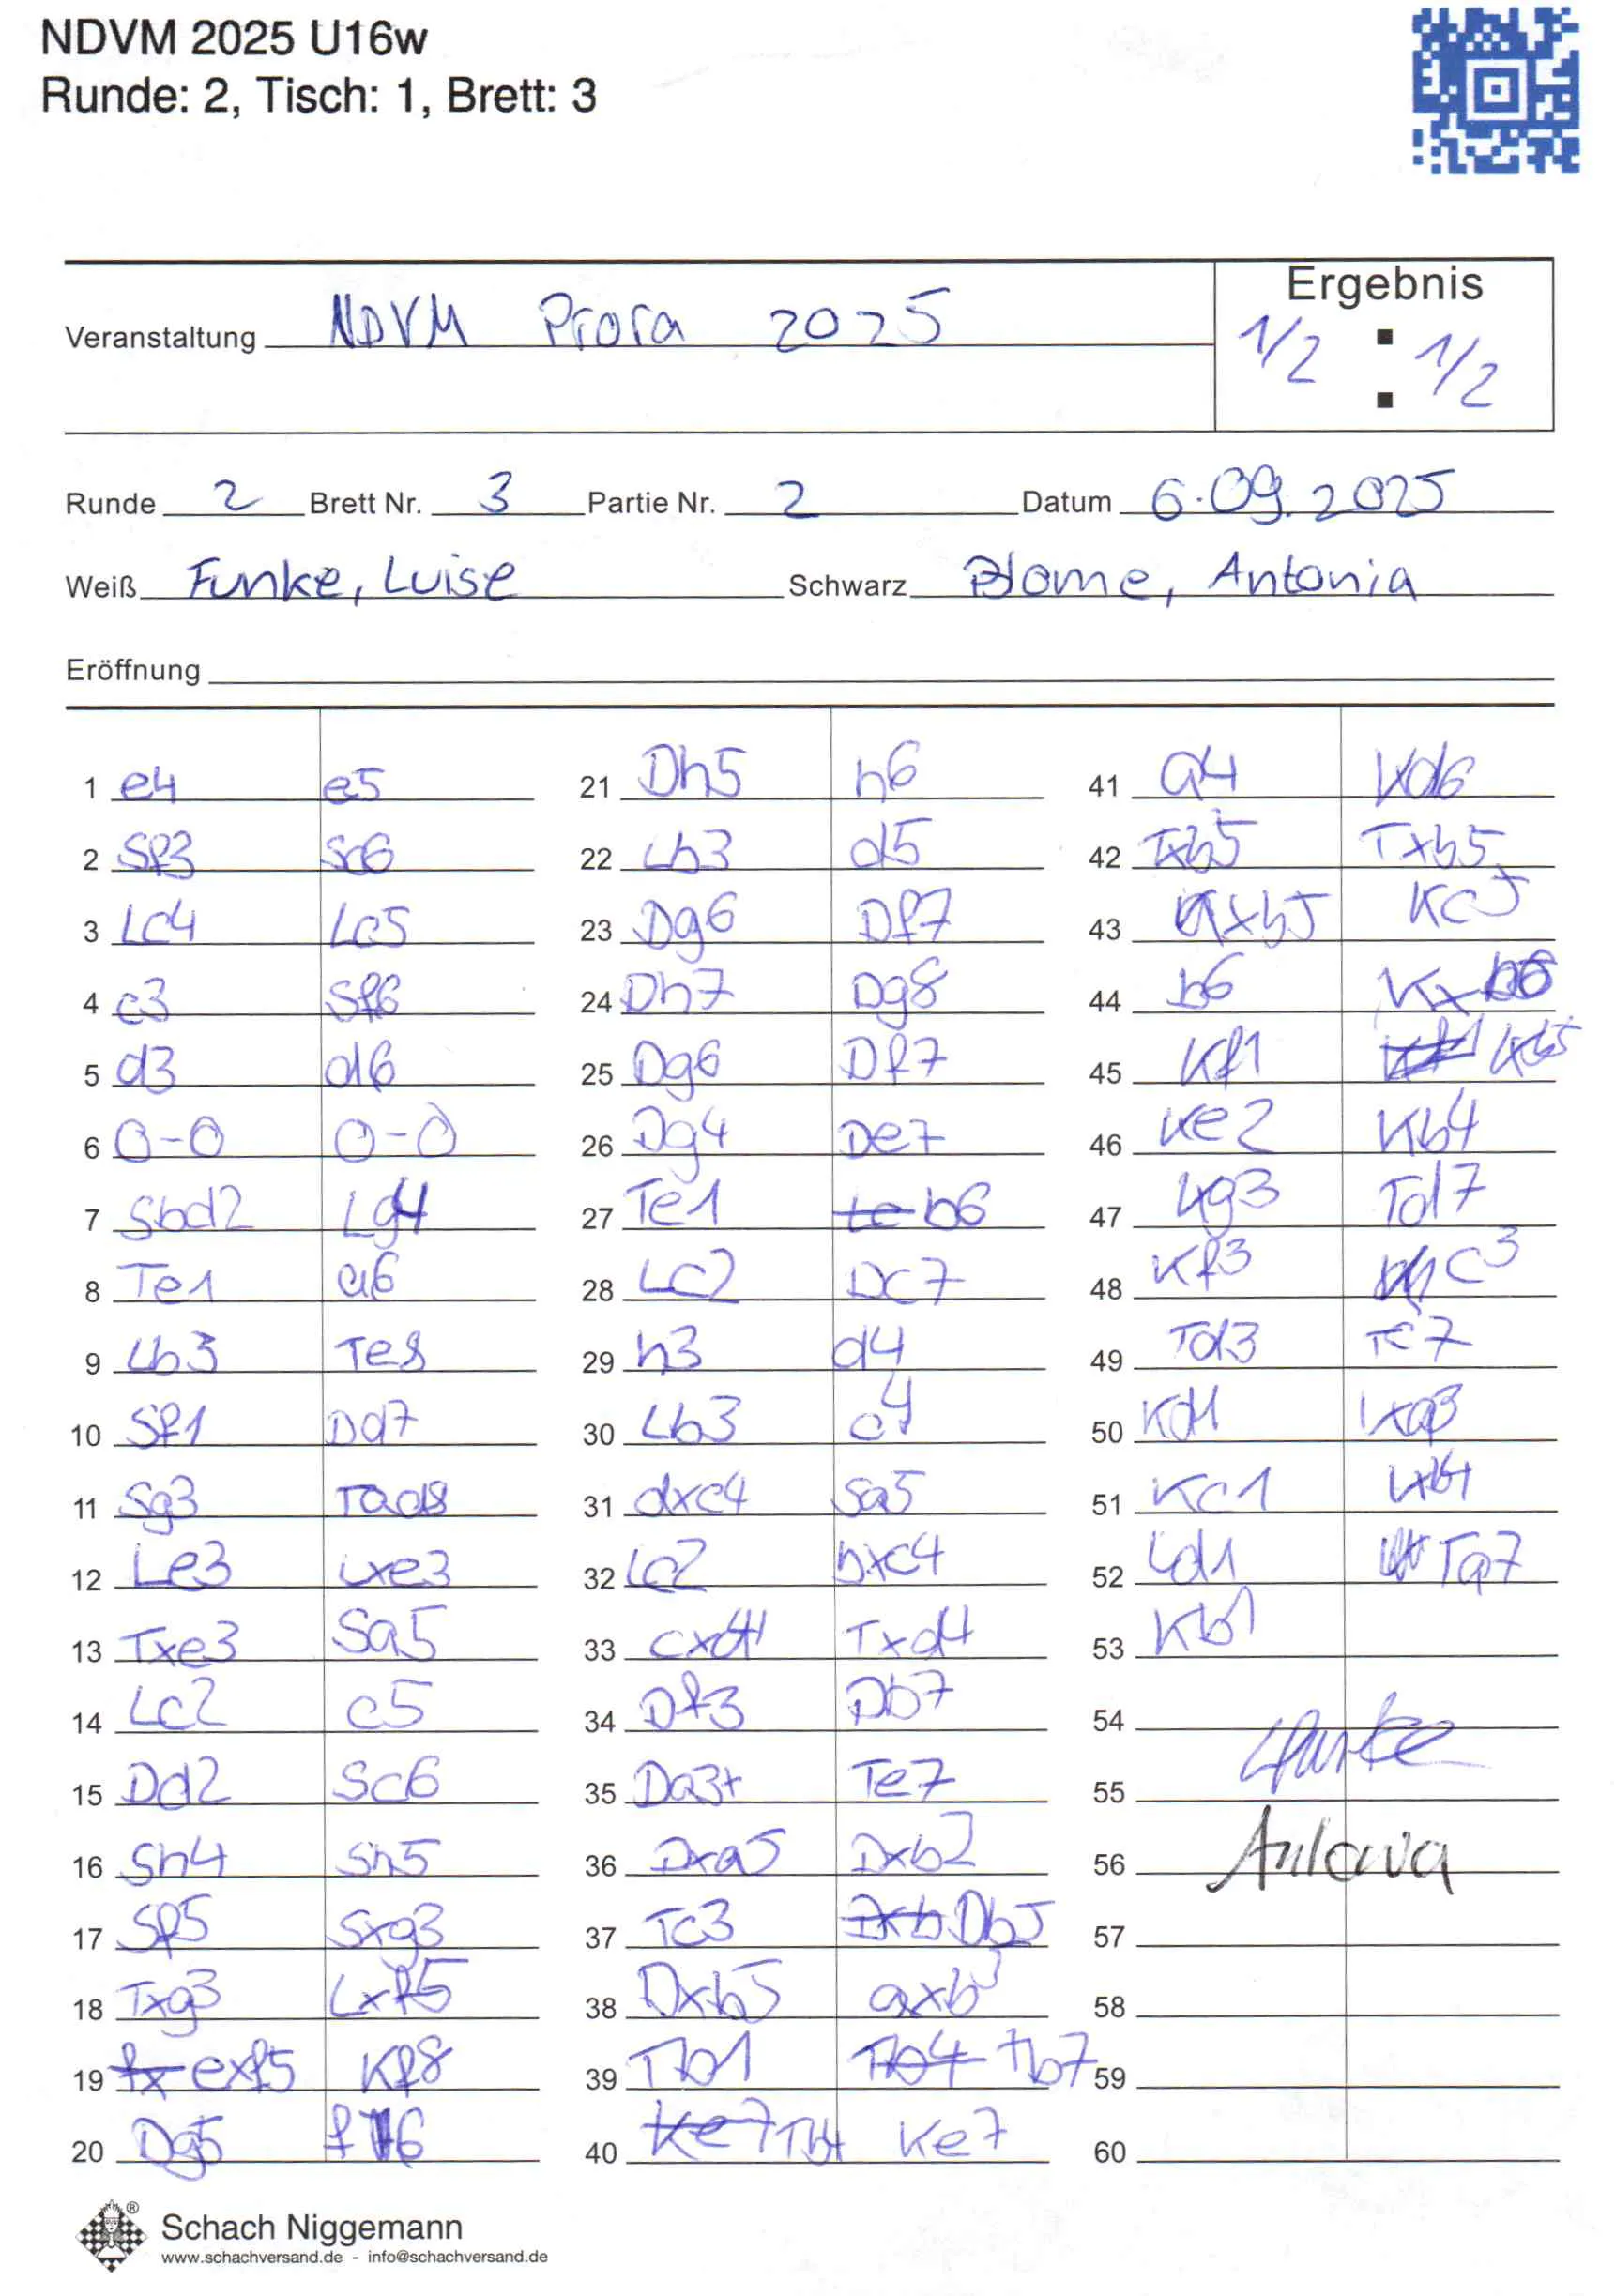 NDVM 2025 U16w
Runde: 2, Tisch: 1, Brett: 3
Veranstaltung NDVM Prora 2025
Ergebnis
1/2 : 1/2
Runde 2 Brett Nr. 3 Partie Nr. 2 Datum 6.09.2025
Weiß Funke, Luise Schwarz Blome, Antonia
Eröffnung
1 e4 e5
2 Sf3 Sc6
3 Lc4 Lc5
4 c3 Sf6
5 d3 d6
6 0-0 0-0
7 Sbd2 Lg4
8 Te1 a6
9 Lb3 Te8
10 Sf1 Dd7
11 Sg3 Tad8
12 Le3 Lxe3
13 Txe3 Sa5
14 Lc2 c5
15 Dd2 Sc6
16 Sh4 Sh5
17 Sf5 Sxg3
18 Txg3 Lxf5
19 exf5 Kf8
20 Dg5 f6
21 Dh5 h6
22 Lb3 d5
23 Dg6 Df7
24 Dh7 Dg8
25 Dg6 Df7
26 Dg4 De7
27 Te1 b6
28 Lc2 Dc7
29 h3 d4
30 Lb3 c4
31 dxc4 Sa5
32 Lc2 bxc4
33 cxd4 Txd4
34 Df3 Db7
35 Da3+ Te7
36 Dxa5 Dxb2
37 Tc3 Db5
38 Dxb5 axb5
39 Tb1 Tb7
40 Tb4 Ke7
41 a4 Kd6
42 Txb5 Txb5
43 axb5 Kc5
44 b6 Kxb6
45 Kf1 Kb5
46 Ke2 Kb4
47 Tg3 Td7
48 Kf3 c3
49 Td3 Tc7
50 Kd1 Ka3
51 Kc1 Kb4
52 Ld1 Ta7
53 Kb1
54
55
56 Antonia
57
58
59
60
Schach Niggemann
www.schachversand.de - info@schachversand.de